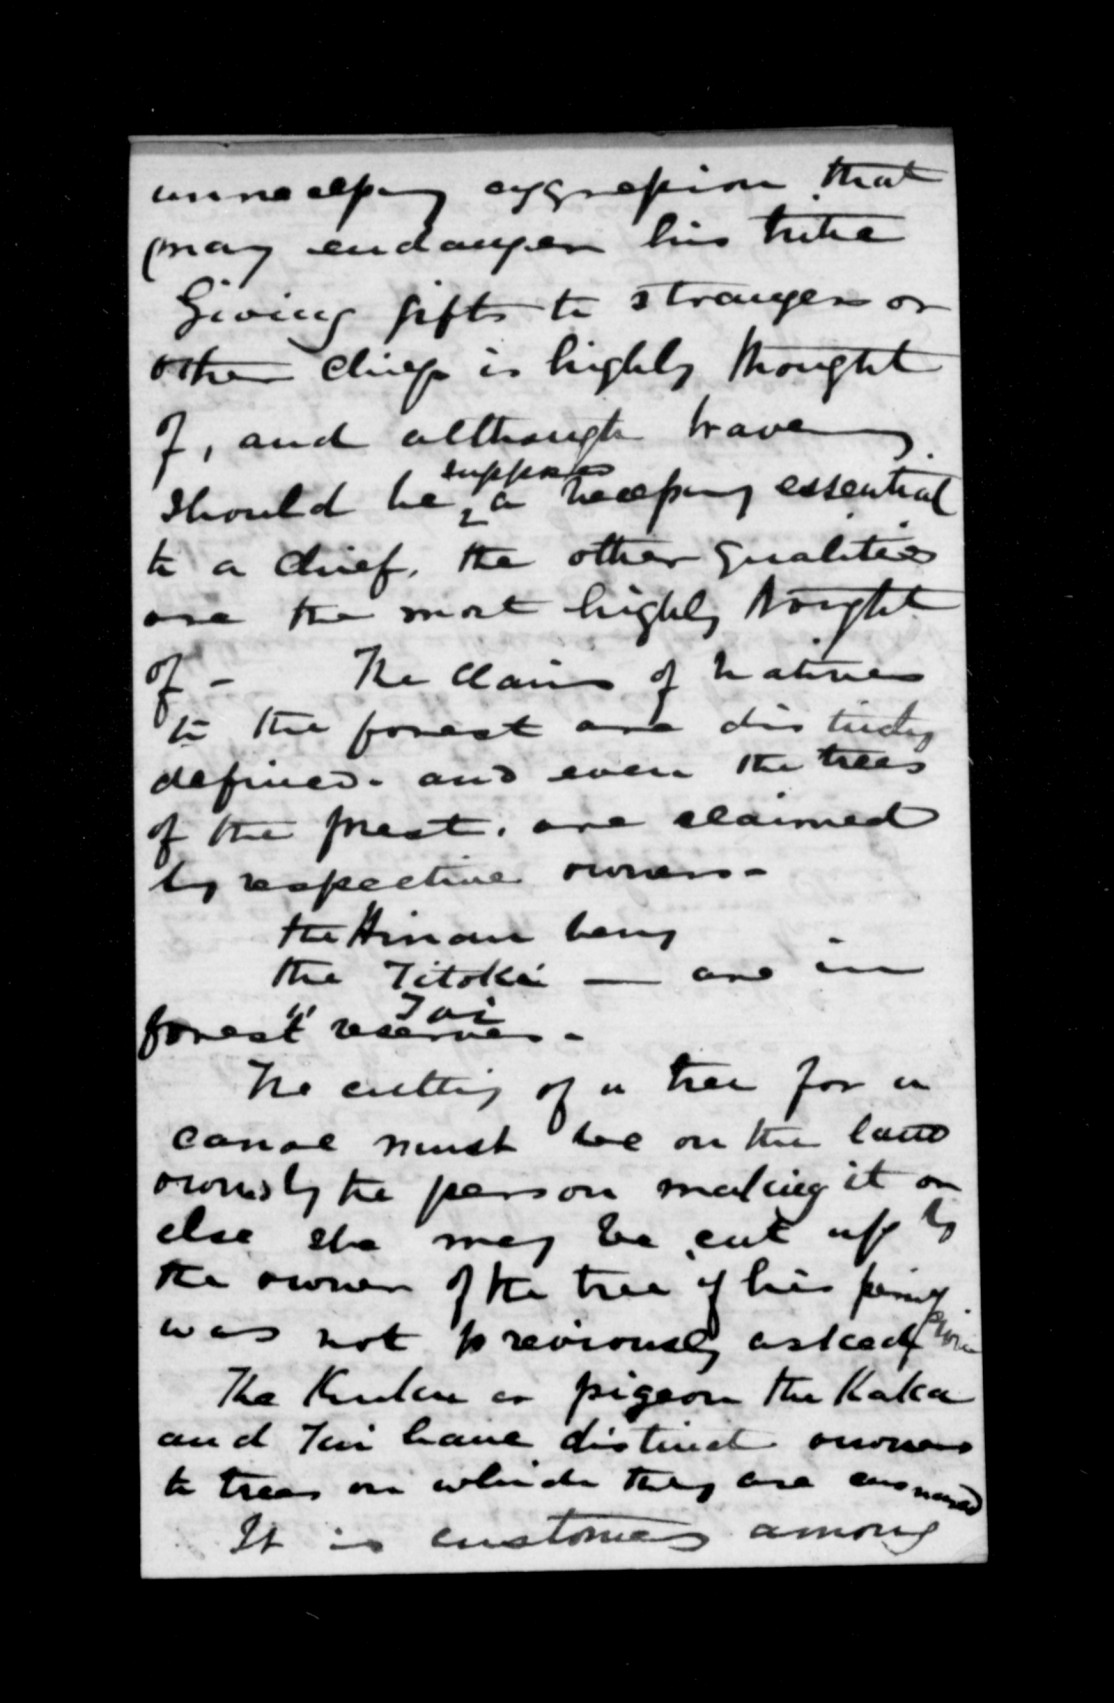 unnecessary aggression that
may endanger his tribe
Giving gifts to strangers or
other chiefs is highly thought
of, and although bravery
supposes
should be a necessary essential
to a chief, the other qualities
are the most highly thought
of - The claims of natives
to the forest are distinctly
defined. and even the trees
of the forest. are claimed
by respective owners -
the Hinau berry
the Titoki — are in
" Toi
forest reserves -
The cutting of a tree for a
canoe must be on the land
owned by the person making it or
else she may be cut up by
the owner of the tree if his
was not previously asked
The Kuku or pigeon the Kaka
and Tui have distinct owners
to trees on which they are ensnared
It is customary among